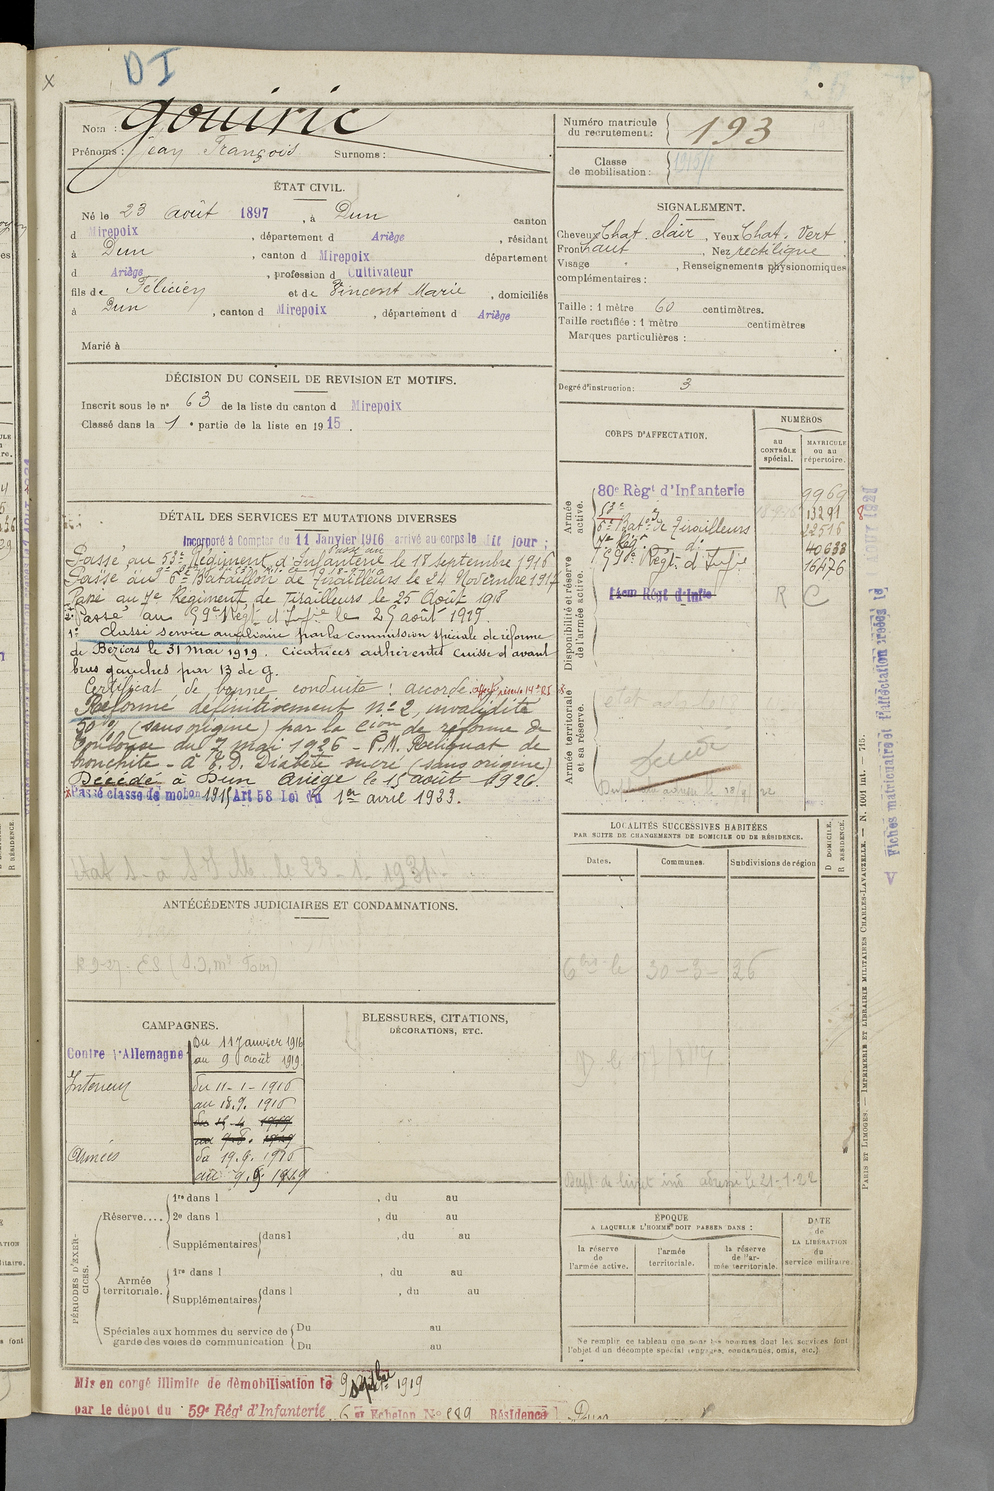 DI
Nom : Gouiric
Prénoms : Jean François Surnoms :
Numéro matricule du recrutement : 193
Classe de mobilisation :
ÉTAT CIVIL.
Né le 23 août 1897, à Dun canton
d Mirepoix, département d Ariège, résidant
à Dun, canton d Mirepoix département
d Ariège, profession d Cultivateur
fils de Félicien et de Vincent Marie, domiciliés
à Dun, canton d Mirepoix, département d Ariège
Marié à
SIGNALEMENT.
Cheveux Chat. clair, Yeux Chat. vert
Front haut, Nez rectiligne
Visage , Renseignements physionomiques
complémentaires :
Taille : 1 mètre 60 centimètres.
Taille rectifiée : 1 mètre centimètres
Marques particulières :
Degré d'instruction : 3
DÉCISION DU CONSEIL DE REVISION ET MOTIFS.
Inscrit sous le n° 63 de la liste du canton d Mirepoix
Classé dans la 1e partie de la liste en 1915.
CORPS D'AFFECTATION.
NUMÉROS
au CONTRÔLE spécial.
MATRICULE ou au répertoire.
Armée active.
80e Régt d'Infanterie 9969
53e 13291
6e Bat. de Tirailleurs 22516
7e Régt d° 40633
59e Régt d'Infie 16476
Disponibilité et réserve de l'armée active.
14eme Régt d'Infie
R C
Armée territoriale et sa réserve.
DÉTAIL DES SERVICES ET MUTATIONS DIVERSES
Incorporé à Compter du 11 Janvier 1916 arrivé au corps le dit jour ;
Passé au 53e Régiment d'Infanterie le 18 septembre 1916
Passé au 6e Bataillon de Tirailleurs le 24 Novembre 1917
Passé au 7e Régiment de tirailleurs le 25 Août 1918
2° Passé au 59e Régt d'Infie le 25 août 1919.
1° Classé service auxiliaire par la commission spéciale de réforme
de Béziers le 31 mai 1919. Cicatrices adhérentes cuisse d avant
bras gauches par B de G.
Certificat de bonne conduite : accordé.
Réformé définitivement n° 2, invalidité
50 % (sans origine) par la Cion de réforme de
Toulouse du 7 mai 1926 - P.M. Reliquat de
bronchite - à E.D. Diabète sucré (sans origine)
Décédé à Dun Ariège le 15 août 1926.
Passé classe de mobon 1915 Art 58 Loi du 1er avril 1933.
Etat 4 à S.I.M. le 23-1-1931.
ANTÉCÉDENTS JUDICIAIRES ET CONDAMNATIONS.
LOCALITÉS SUCCESSIVES HABITÉES
PAR SUITE DE CHANGEMENTS DE DOMICILE OU DE RÉSIDENCE.
Dates. Communes. Subdivisions de région
D DOMICILE. R RÉSIDENCE.
le 30-3-26
Dupl. de livret ind adressé le 21-1-22
CAMPAGNES.
Contre l'Allemagne
Du 11 Janvier 1916
au 9 août 1919
Intérieur
du 11-1-1916
au 18.9.1916
Armées
du 19.9.1916
au 9.8.1919
BLESSURES, CITATIONS,
DÉCORATIONS, ETC.
PÉRIODES D'EXERCICES.
Réserve....
1re dans l , du au
2e dans l , du au
Supplémentaires dans l , du au
Armée territoriale.
1re dans l , du au
Supplémentaires dans l , du au
Spéciales aux hommes du service de garde des voies de communication
Du au
Du au
ÉPOQUE
A LAQUELLE L'HOMME DOIT PASSER DANS :
la réserve de l'armée active.
l'armée territoriale.
la réserve de l'armée territoriale.
DATE de LA LIBÉRATION du service militaire.
Ne remplir ce tableau que pour les hommes dont les services font
l'objet d'un décompte spécial (engagés, condamnés, omis, etc.)
PARIS ET LIMOGES. — IMPRIMERIE ET LIBRAIRIE MILITAIRES CHARLES-LAVAUZELLE. — N. 1001 int. — 715.
Fiches matriculaire et d'affectation
Mis en congé illimité de démobilisation le 9 septbre 1919
par le dépôt du 59e Régt d'Infanterie 6e Echelon N° 889 Résidence Dun